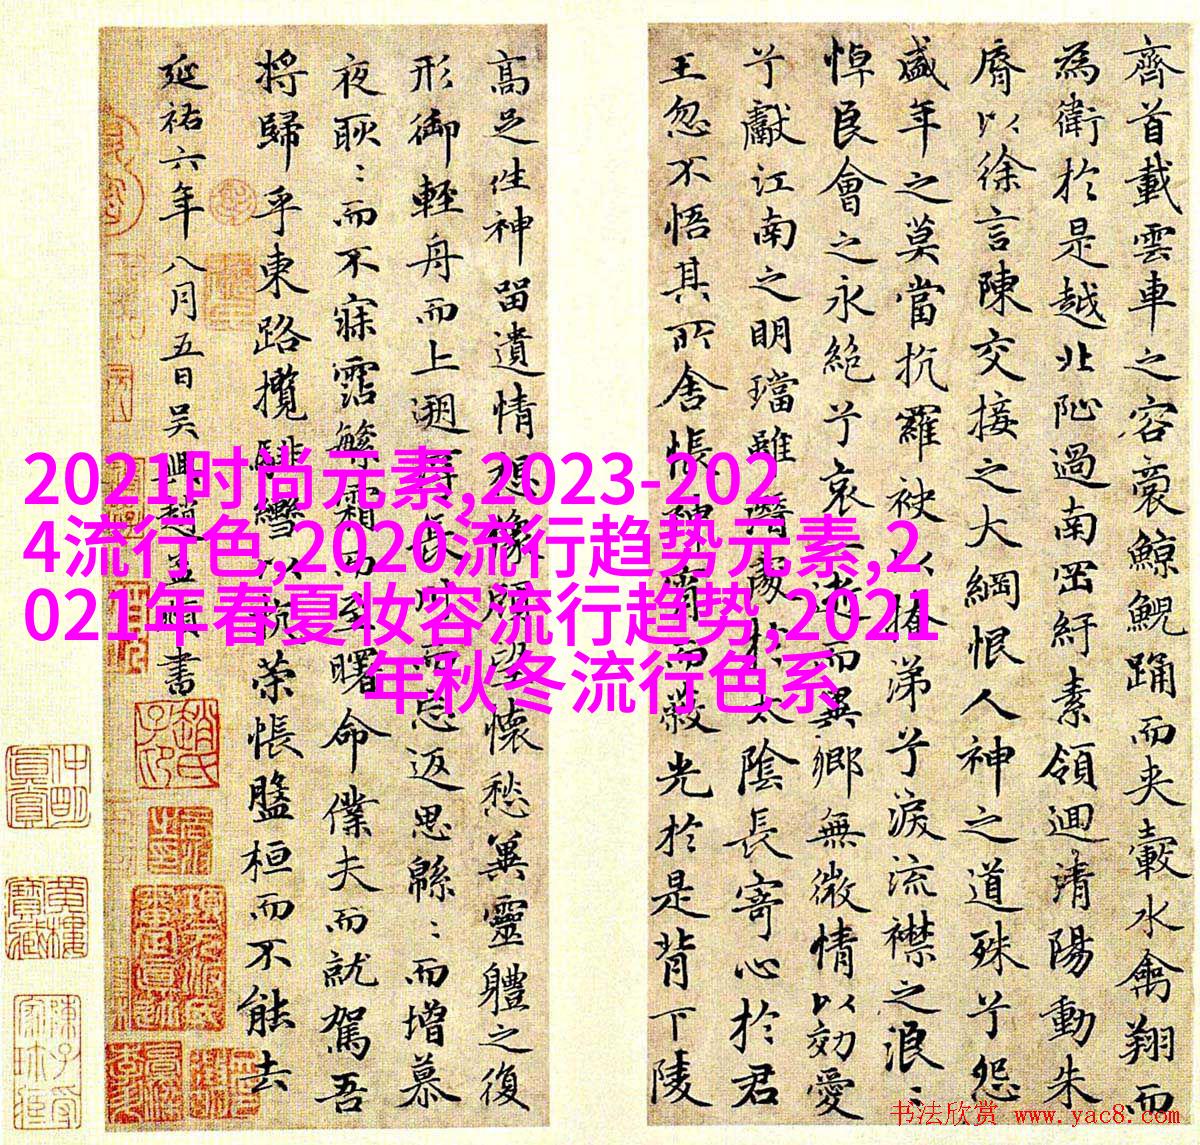 2021时尚元素,2023-202
4流行色,2020流行趋势元素,2
021年春夏妆容流行趋势,2021
年秋冬流行色系
齊首載雲車之容裔鯨鯢踊而夾轂水禽翔而
為衛於是越北沚過南岡紆素領迴清陽動朱
脣以徐言陳交接之大綱恨人神之道殊兮怨
盛年之莫當抗羅袂以掩涕兮淚流襟之浪〻
悼良會之永絕兮哀一逝而異鄉無微情以効愛
兮獻江南之明璫雖潛處於太陰長寄心於君
王忽不悟其所舍悵神宵而蔽光於是背下陵
高足往神留遺情想像顧望懷愁冀靈體之復
形御輕舟而上遡浮長川而忘返思緜〻而增慕
夜耿〻而不寐霑繁霜而至曙命僕夫而就駕吾
將歸乎東路攬騑轡以抗策悵盤桓而不能去
延祐六年八月五日吳興趙孟頫書
书法欣赏 www.yac8.com